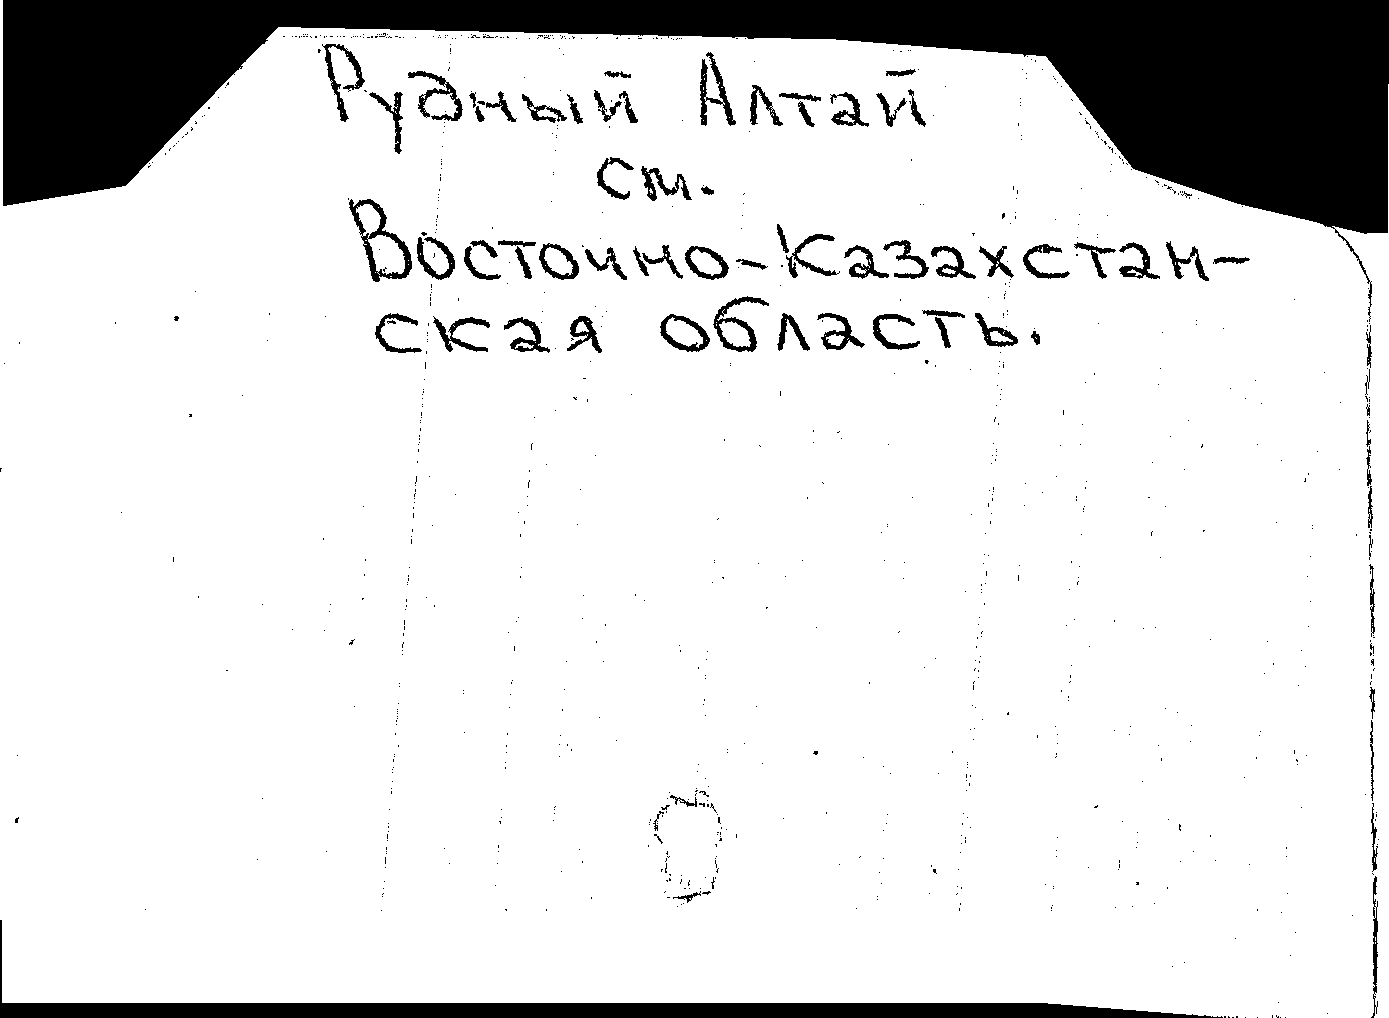 Рудный Алтай
см.
Восточно-Казахстан-
ская область.